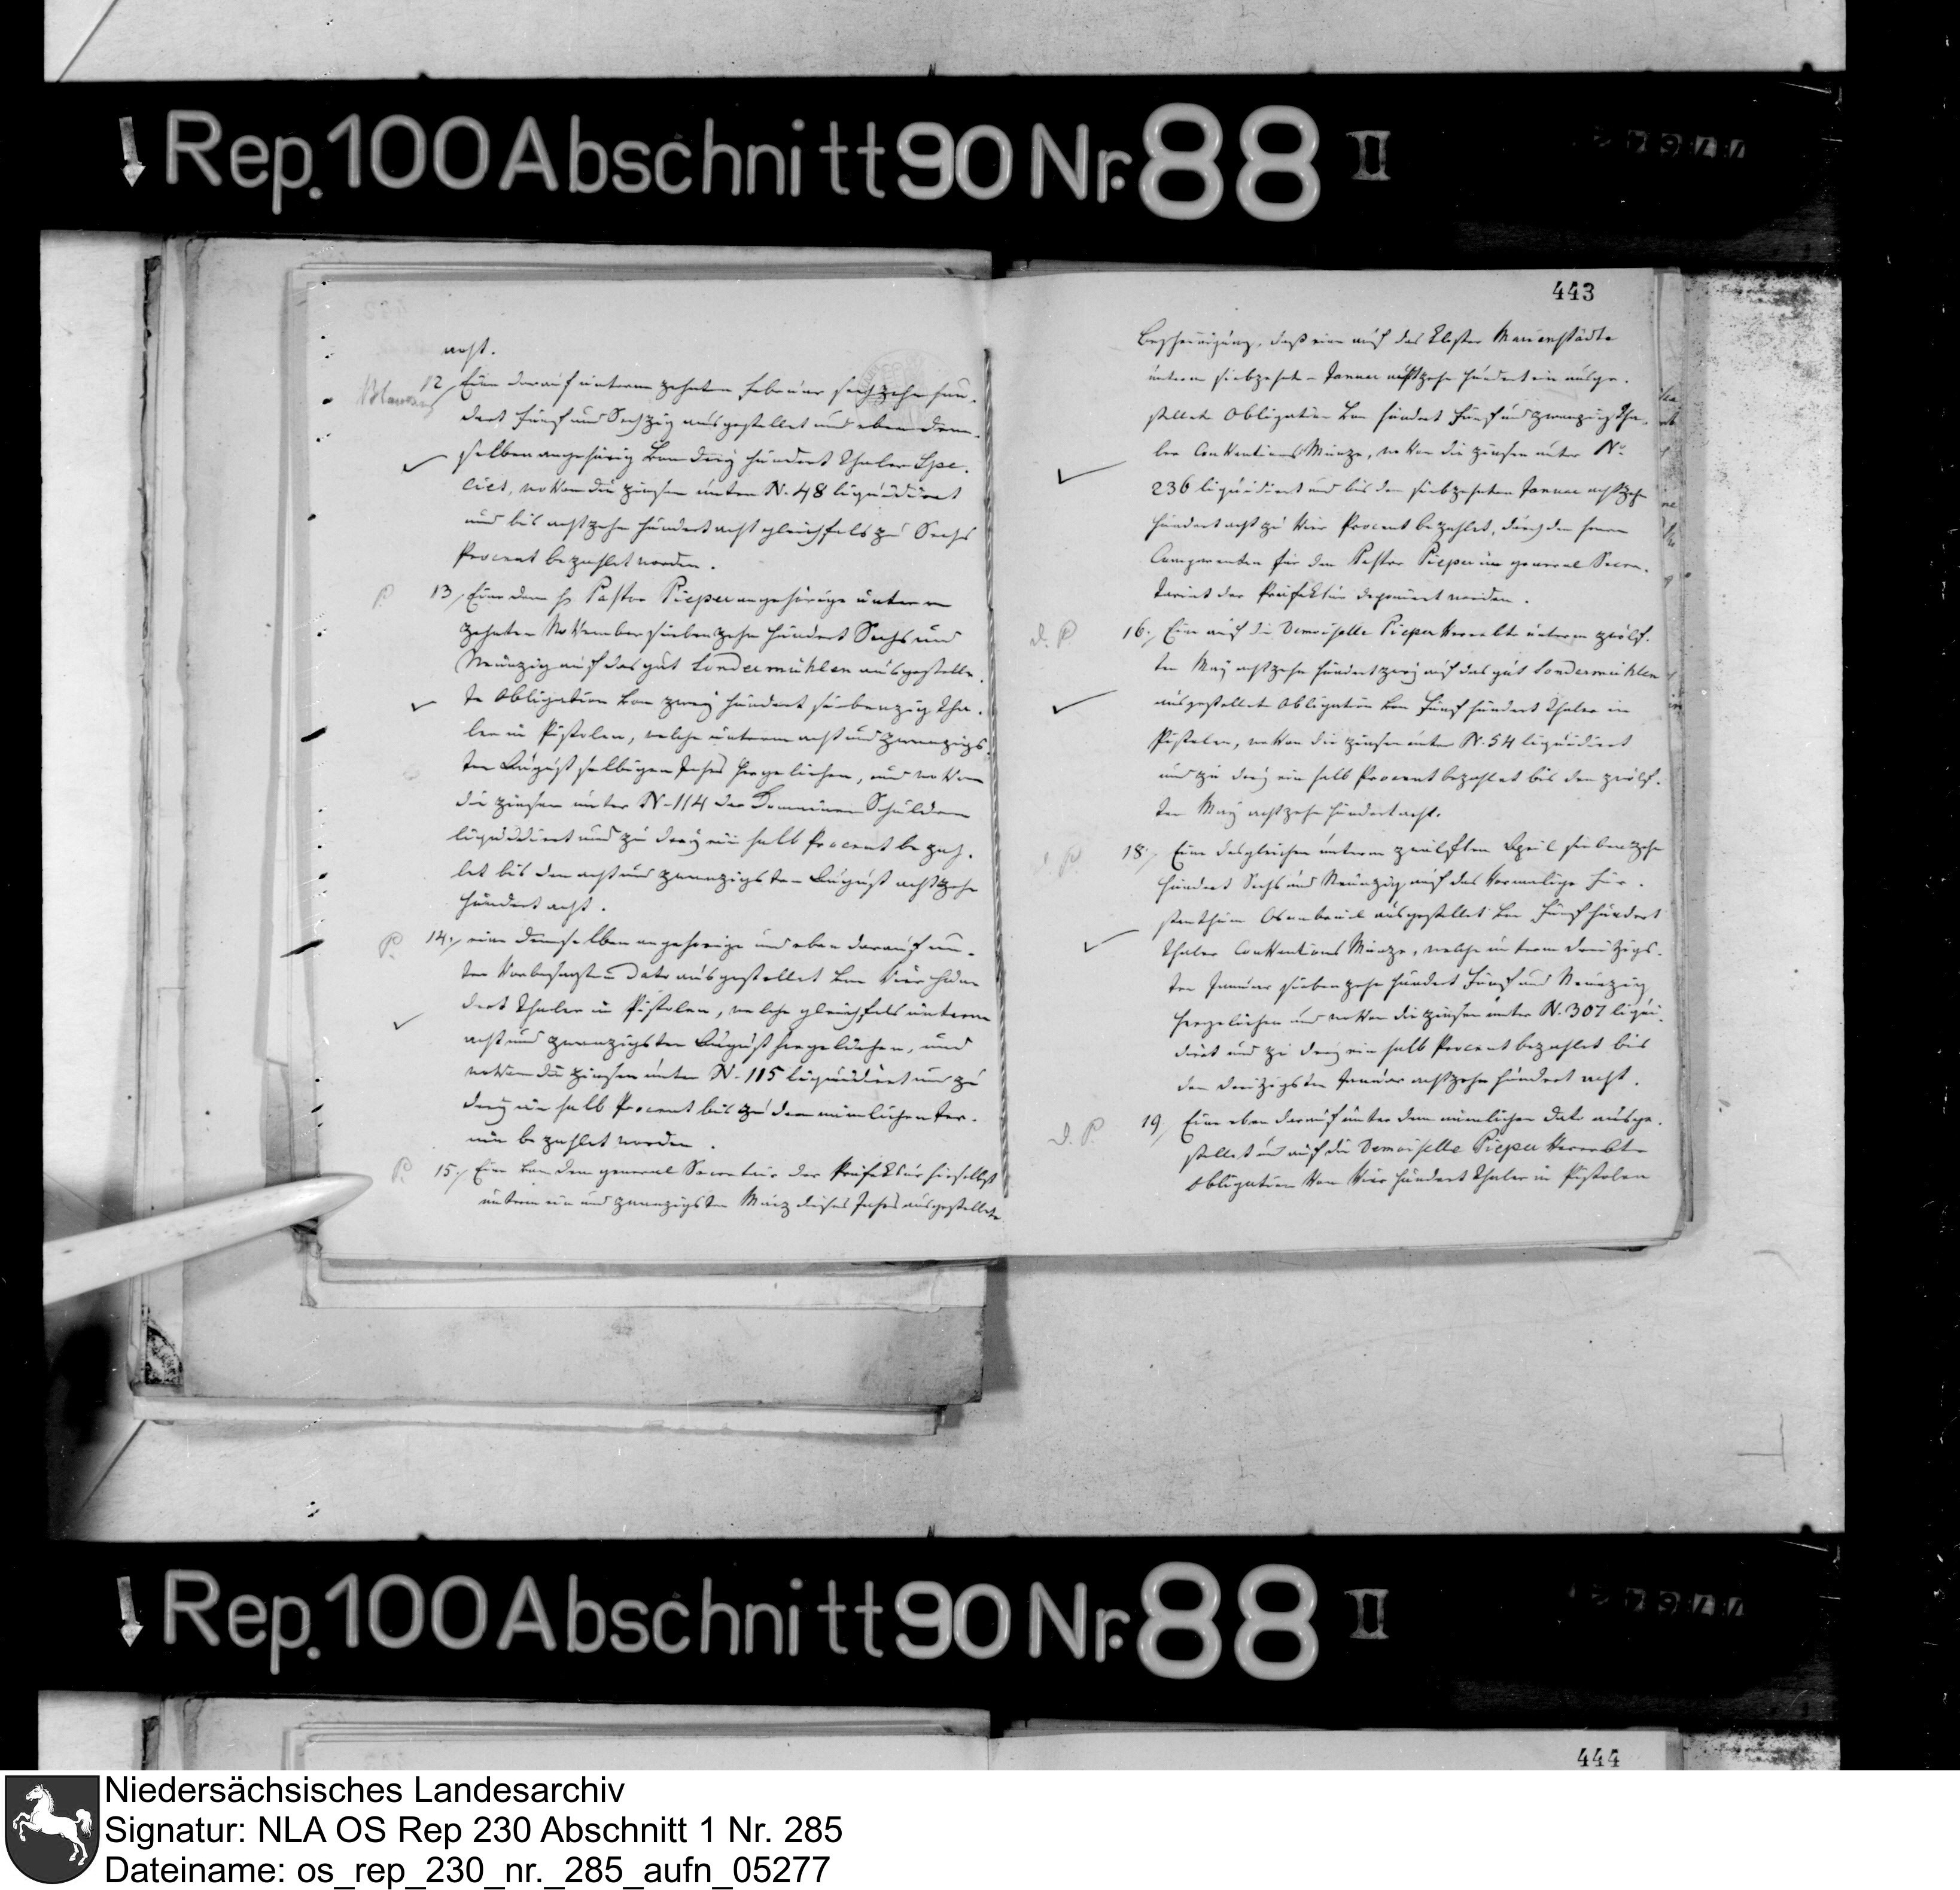 Rep. 100 Abschnitt 90 Nr. 88 II
443
acht.
12, Eine darauf unterm zehnten Februar sechzehn hun-
dert fünf und Sechzig ausgestellet und eben dem-
selben angehörig von drey hundert Thaler Spe-
cies, wovon die Zinsen unter N. 48 liquidiret
und bis achtzehn hundert acht gleichfals zu Sechs
Procent bezahlet worden.
P. 13, Eine dem H. Pastor Pieper angehörige unterm
zehnten November siebenzehn hundert Sechs und
Neunzig auf das gut Sondermühlen ausgestelle-
te Obligation von zwey hundert siebenzig Tha-
ler in Pistolen, welche unterm acht und zwanzigs-
ten August selbigen Jahrs hergeliehen, und wovon
die Zinsen unter N. 114 der Schulden
liquidiret und zu drey ein halb Procent bezah-
let bis den acht und zwanzigsten August achtzehn
hundert acht.
P. 14., eine demselben angehörige und eben darauf un-
ter vorbesagtem Dato ausgestellet von Vier hun-
dert Thaler in Pistolen, welche gleichfals unterm
acht und zwanzigsten August hergeliehen, und
wovon die Zinsen unter N. 115 liquidiret und zu
drey ein halb Procent bis zu dem nämlichen Ter-
min bezahlet worden.
P. 15., Eine von dem general Secretair der Präfektur hieselbst
unterm ein und zwanzigsten März dieses Jahrs ausgestellte
Bescheinigung, daß eine auf das Kloster Marienstädte
unterm siebzehnten Januar achtzehn hundert ein ausge-
stellete Obligation von hundert fünf und zwanzig Tha-
ler Conventions Münze, wovon die Zinsen unter No
236 liquidiret und bis den siebzehnten Januar achtzehn
hundert acht zu Vier Procent bezahlet, durch den Herrn
Comparenten für den Pastor Pieper im general Secre-
tariat der Präfektur deponiert worden.
D. P. 16., Eine auf die Demoiselle Pieper vererbte unterm zwölf-
ten May achtzehn hundert zwey auf das gut Sondermühlen
ausgestellete Obligation von fünf hundert Thaler in
Pistolen, wovon die Zinsen unter N. 54 liquidiret
und zu drey ein halb Procent bezahlet bis den zwölf-
ten May achtzehn hundert acht.
18., Eine desgleichen unterm zwölften April siebenzehn
hundert Sechs und Neunzig auf das vormalige Für-
stenthum Osnabrück ausgestellet von fünf hundert
Thaler Conventions Münze, welche unterm dreizigs-
ten Januar siebenzehn hundert fünf und Neunzig
hergeliehen und wovon die Zinsen unter N. 307 liqui-
diret und zu drey ein halb Procent bezahlet bis
den dreizigsten Januar achtzehn hundert acht.
D. P. 19, Eine eben darauf unter dem nämlichen Dato ausge-
stellet und auf die Demoiselle Pieper vererbte
Obligation von Vier hundert Thaler in Pistolen
Rep. 100 Abschnitt 90 Nr. 88 II
444
Niedersächsisches Landesarchiv
Signatur: NLA OS Rep 230 Abschnitt 1 Nr. 285
Dateiname: os_rep_230_nr._285_aufn_05277